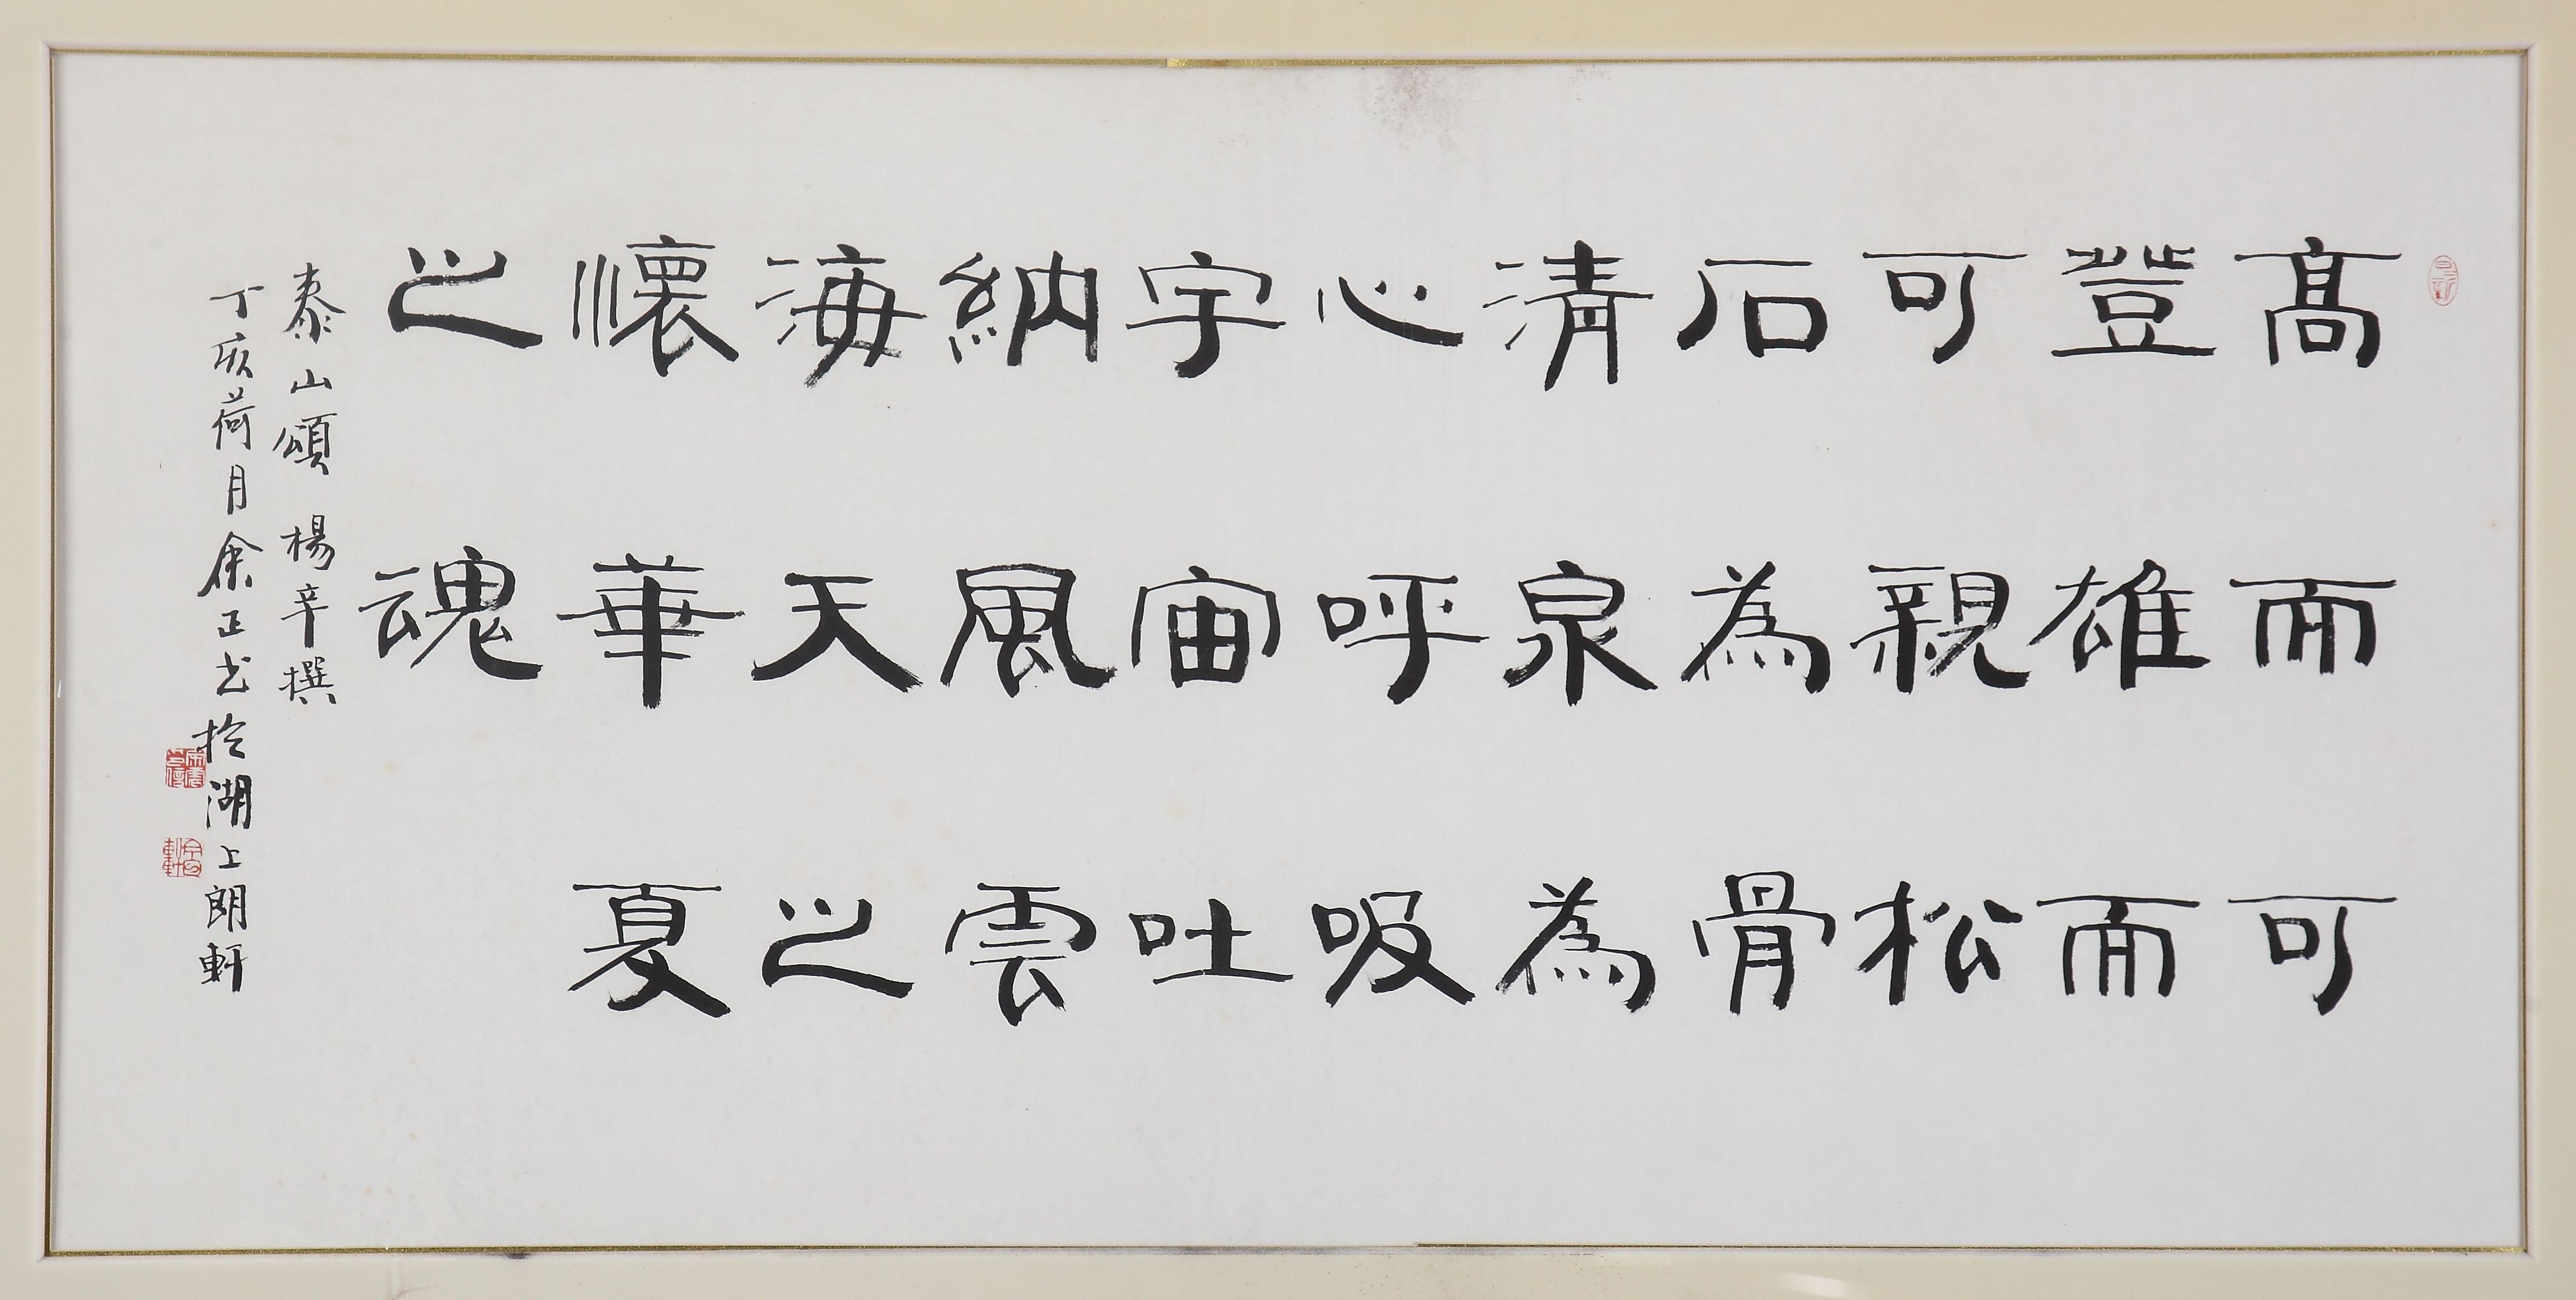 高而可
登雄而
可親松
石為骨
清泉為
心呼吸
宇宙吐
納風雲
海天之
懷華夏
之魂
泰山頌 楊辛撰
丁亥荷月余正书於湖上朗軒